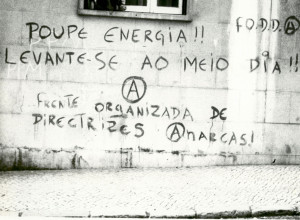 POUPE ENERGIA!!
F.O.D.D.Ⓐ
LEVANTE-SE AO MEIO DIA!!
Ⓐ
FRENTE ORGANIZADA DE
DIRECTRIZES ⒶNARCAS!